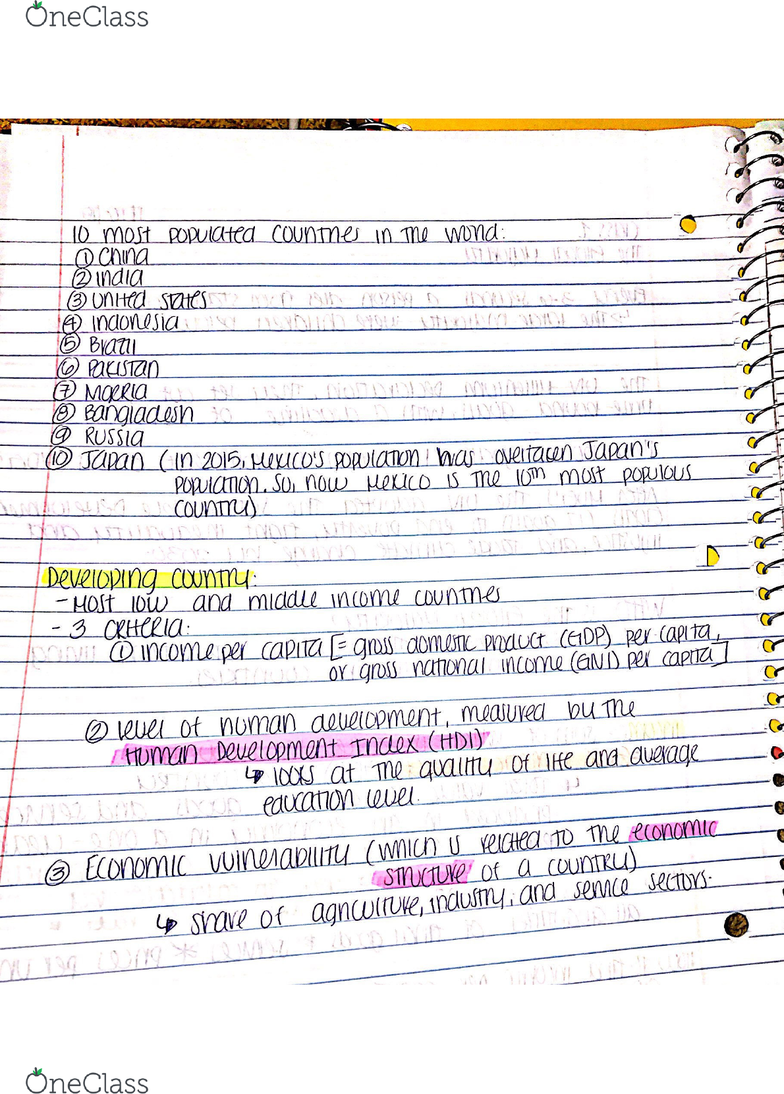 OneClass
10 most populated countries in the world:
① China
② India
③ United States
④ Indonesia
⑤ Brazil
⑥ Pakistan
⑦ Nigeria
⑧ Bangladesh
⑨ Russia
⑩ Japan (in 2015, Mexico's population was overtaken Japan's
population. So, now Mexico is the 10th most populous
country)
Developing country:
- Most low and middle income countries
- 3 criteria:
① income per capita [= gross domestic product (GDP) per capita,
or gross national income (GNI) per capita]
② level of human development, measured by the
Human Development Index (HDI)
↳ looks at the quality of life and average
education level.
③ Economic vulnerability (which is related to the economic
structure of a country)
↳ share of agriculture, industry, and service sectors.
OneClass